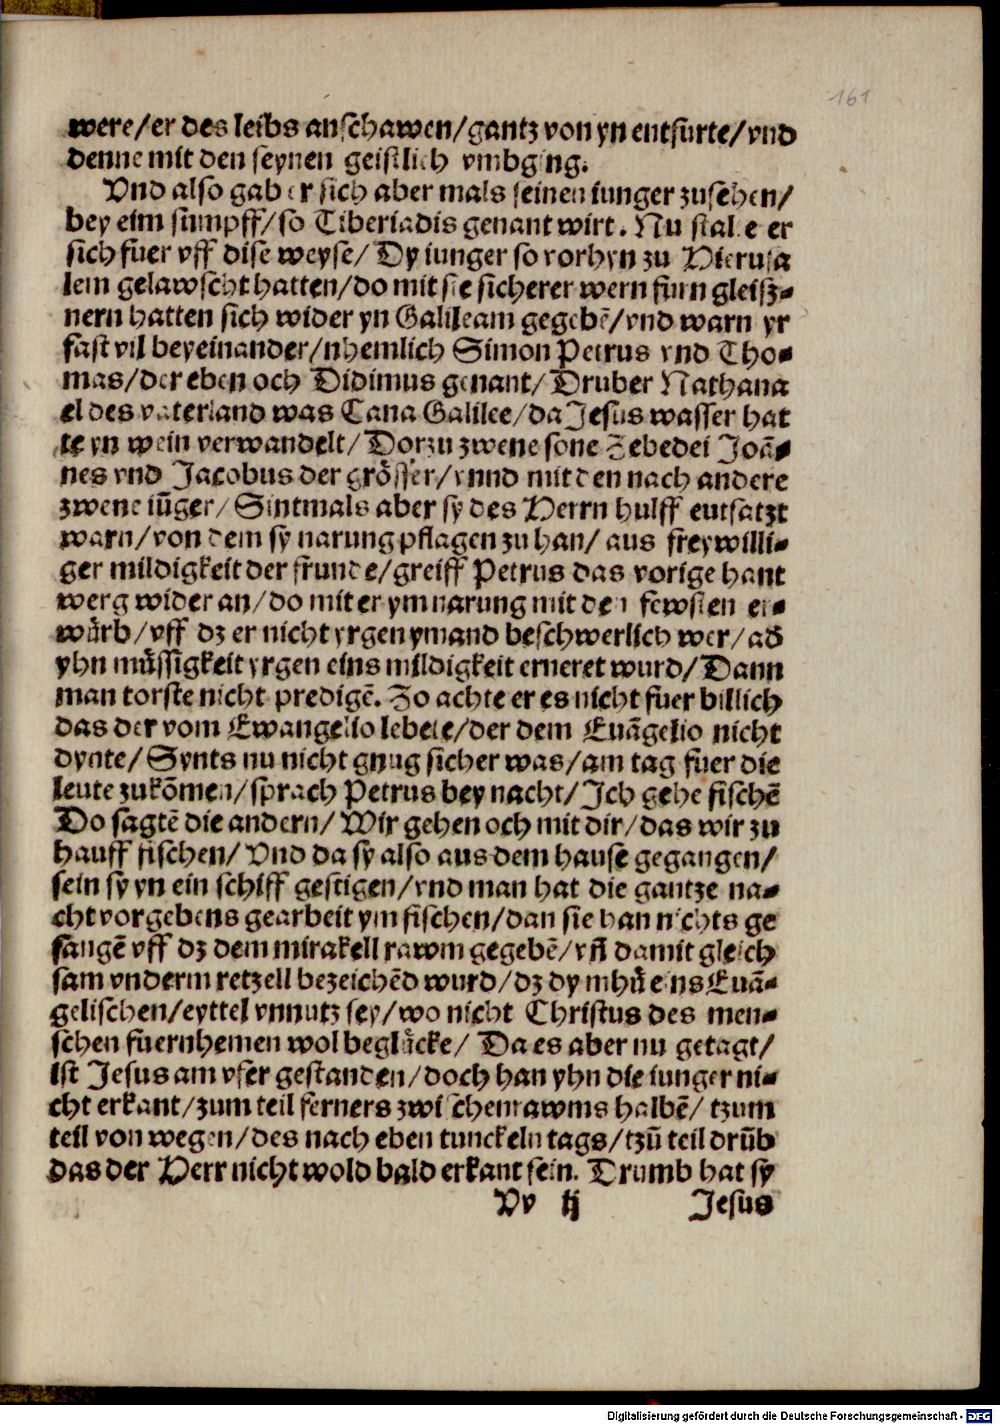 161
were/er des leibs anschawen/gantz von yn entfurte/vnd
denne mit den seynen geistlich vmbging.
Vnd also gab er sich aber mals seinen iunger zusehen/
bey eim sumpff/so Tiberiadis genant wirt. Nu stalte er
sich fuer vff dise weyse/ Dy iunger so vorhyn zu Hierusa
lem gelawscht hatten/do mit sie sicherer wern furn gleisz-
nern hatten sich wider yn Galileam gegebē/vnd warn yr
fast vil beyeinander/nhemlich Simon Petrus vnd Tho-
mas/der eben och Didimus genant/Druber Nathana
el des vaterland was Cana Galilee/da Jesus wasser hat
te yn wein verwandelt/Dorzu zwene sone Zebedei Joā-
nes vnd Jacobus der grösser/vnnd mit den nach andere
zwene iūger/Sintmals aber sy des Herrn hulff entsatzt
warn/von dem sy narung pflagen zu han/ aus freywilli-
ger mildigkeit der frunde/greiff Petrus das vorige hant
werg wider an/do mit er ym narung mit den fewsten er-
würb/vff dz er nicht yrgen ymand beschwerlich wer/ad
yhn müssigkeit yrgen eins mildigkeit erneret wurd/Dann
man torste nicht predigē. Zo achte er es nicht fuer billich
das der vom Ewangelio lebete/der dem Euāgelio nicht
dynte/Synts nu nicht gnug sicher was/am tag fuer die
leute zukōmen/sprach Petrus bey nacht/Ich gehe fischē
Do sagtē die andern/Wir gehen och mit dir/das wir zu
hauff fischen/ Vnd da sy also aus dem hause gegangen/
sein sy yn ein schiff gestigen/vnd man hat die gantze na-
cht vorgebens gearbeit ym fischen/dan sie han nichts ge
fangē vff dz dem mirakell rawm gegebē/vn̄ damit gleich
sam vnderm retzell bezeichēd wurd/dz dy mhüe ins Euā-
gelischen/eyttel vnnutz sey/wo nicht Christus des men-
schen fuernhemen wol beglücke/ Da es aber nu getagt/
ist Jesus am vfer gestanden/doch han yhn die iunger ni-
cht erkant/zum teil ferners zwischenrawms halbē/ tzum
teil von wegen/des nach eben tunckeln tags/tzū teil drūb
das der Herr nicht wold bald erkant sein. Drumb hat sy
Vv ij Jesus
Digitalisierung gefördert durch die Deutsche Forschungsgemeinschaft - DFG